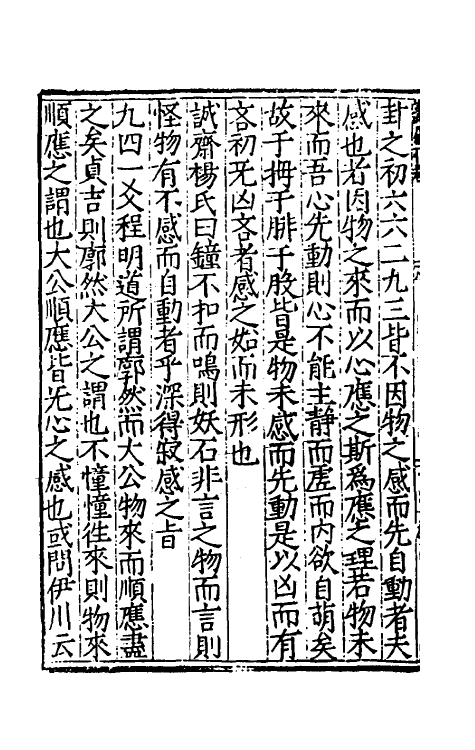 卦之初六六二九三皆不因物之感而先自動者夫
感也者因物之來而以心應之斯為應之理若物未
來而吾心先動則心不能主静而虚而内欲自萌矣
故于拇于腓于股皆是物未感而先動是以凶而有
吝初无凶吝者感之始而未形也
誠齋楊氏曰鐘不扣而鳴則妖石非言之物而言則
怪物有不感而自動者乎深得寂感之旨
九四一爻程明道所謂廓然而大公物來而順應盡
之矣貞吉則廓然大公之謂也不憧憧徃來則物來
順應之謂也大公順應皆无心之感也或問伊川云